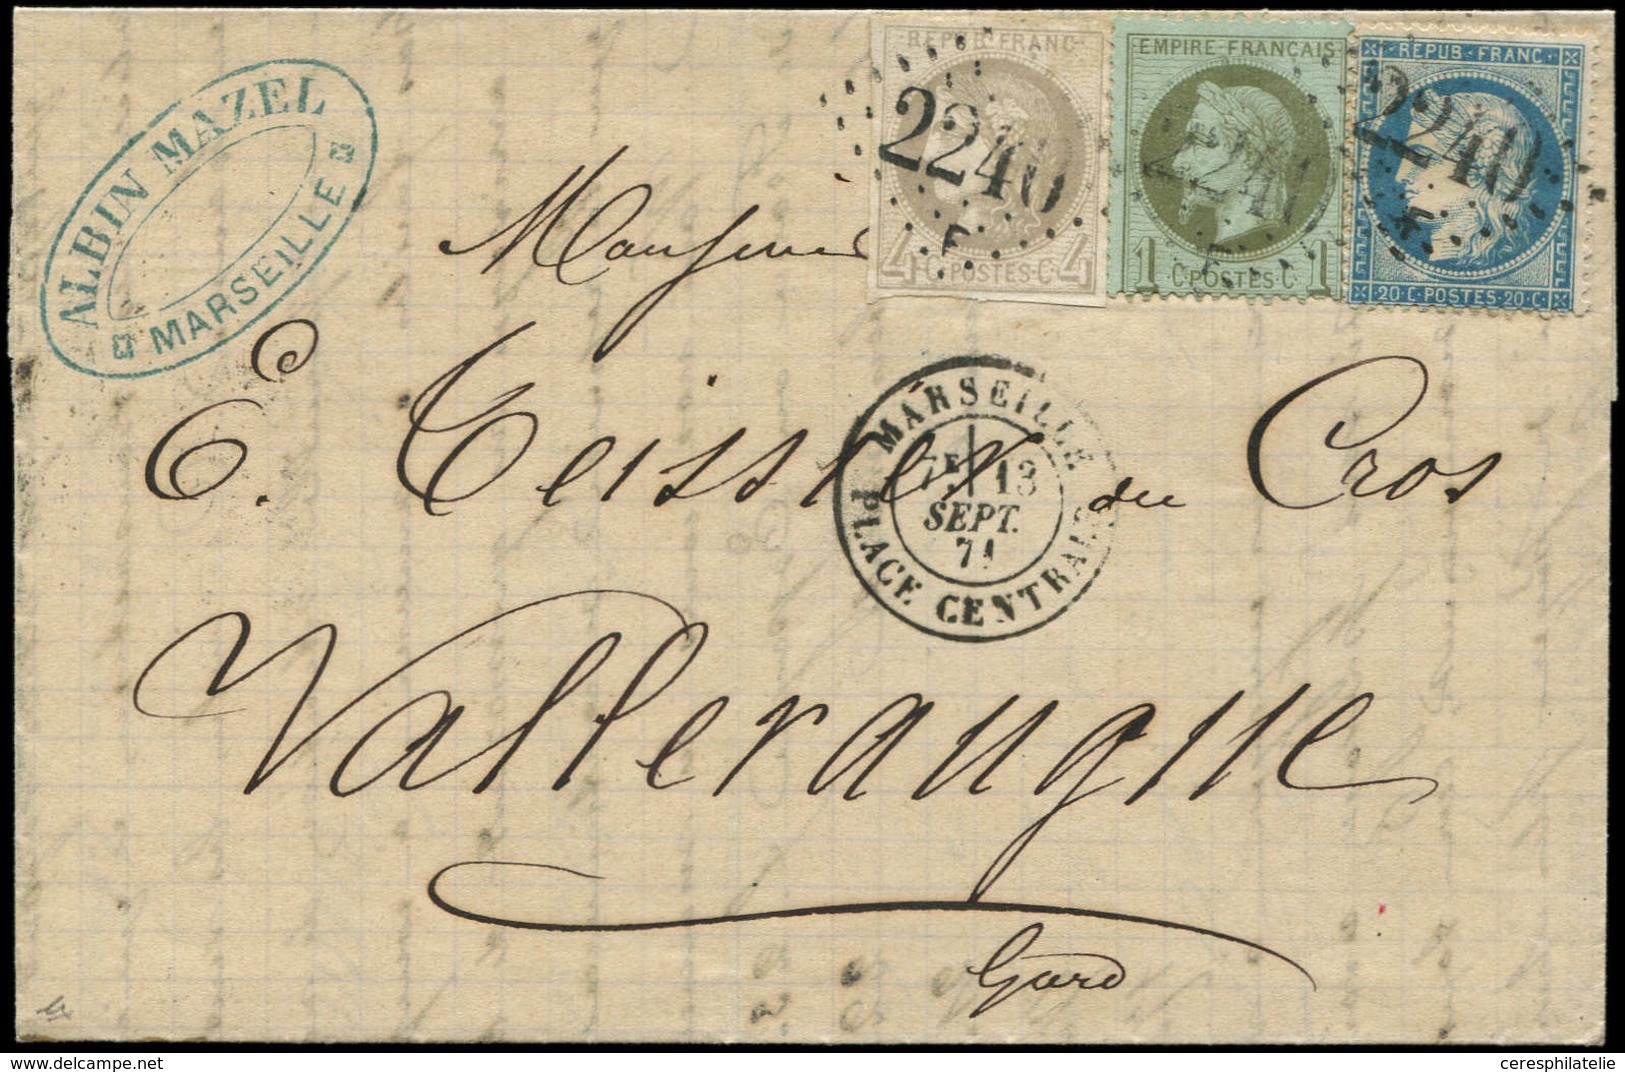 ALBIN MAZEL
MARSEILLE
REPUB. FRANC.
4 C. POSTES. C. 4
2240
EMPIRE FRANÇAIS
1 C. POSTES. C. 1
2240
REPUB. FRANC.
20 C. POSTES. 20 C.
2240
Monsieur
E. Teissier du Cros
MARSEILLE
7E 13
SEPT.
71
PLACE CENTRALE
Valleraugue
Gard
ceresphilatelie